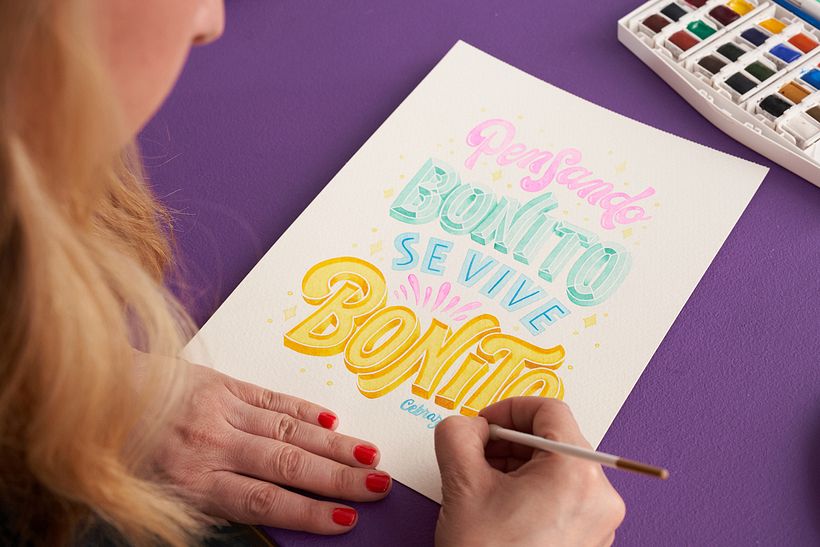 Pensando
BONITO
SE VIVE
BONITO